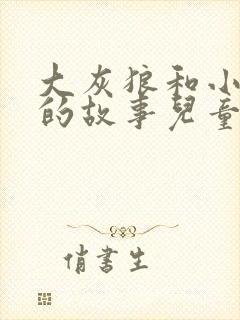 大灰狼和小
的故事兒童
俏書生